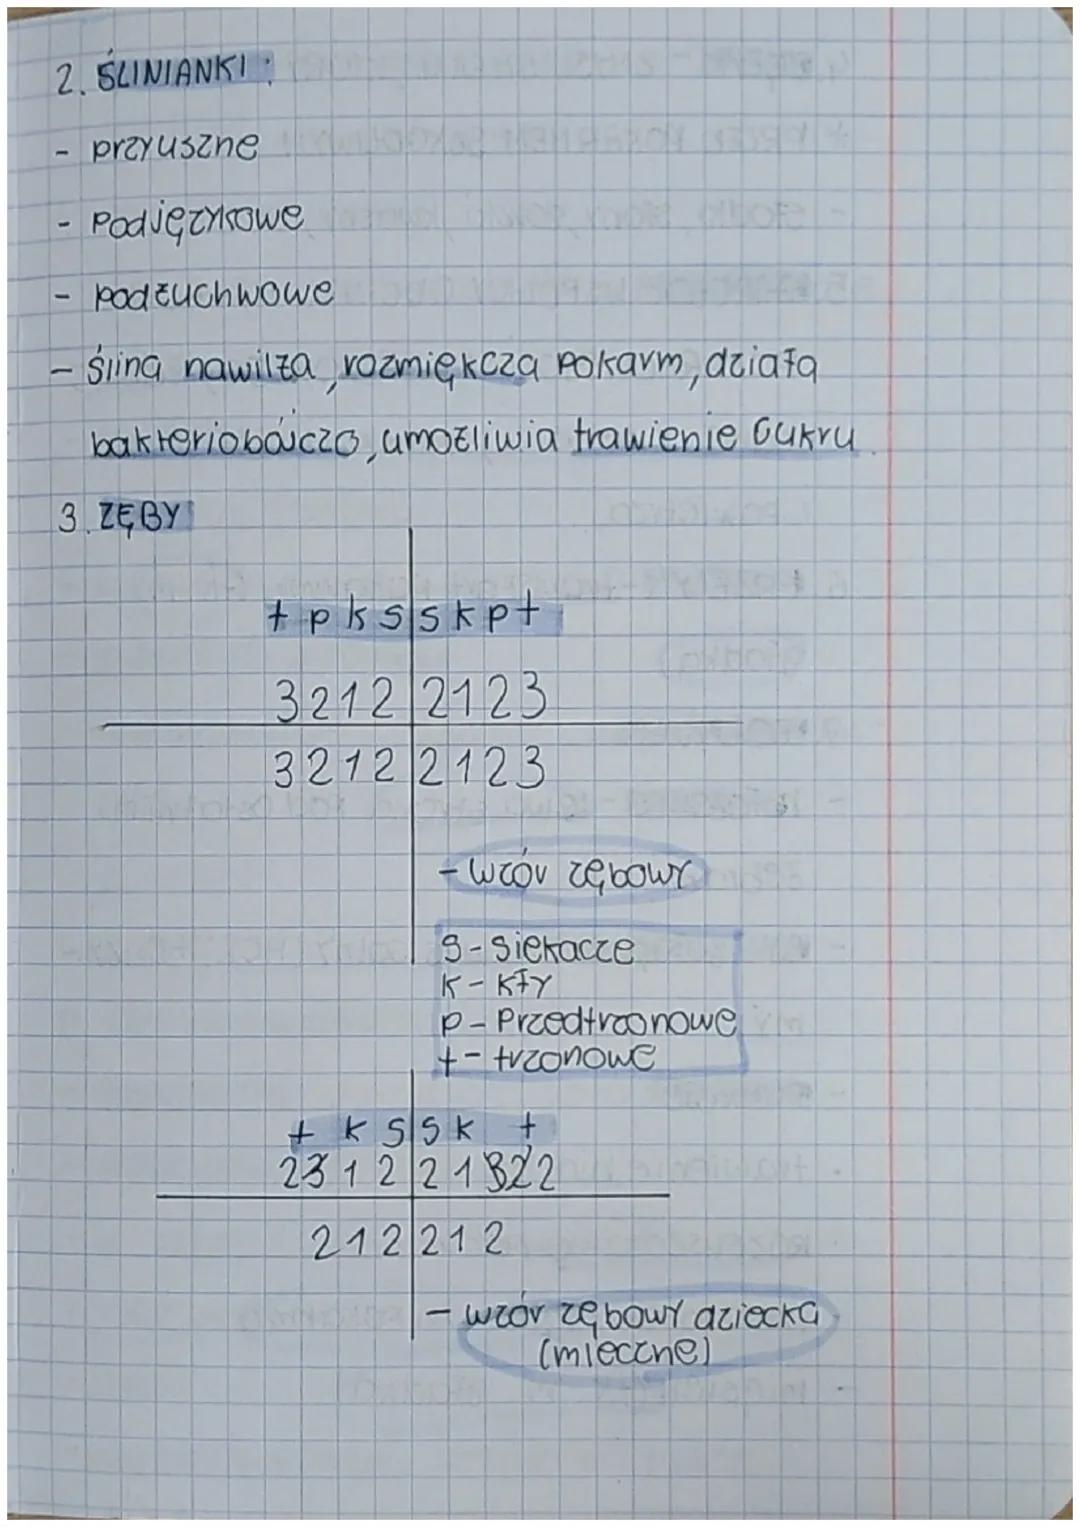 2. ŚLINIANKI:
- przyuszne
- Podjęzykowe
- podżuchwowe
- ślina nawilża, rozmiękcza pokarm, działa
bakteriobójczo, umożliwia trawienie cukru
3. ZĘBY
t p k s | s k p t
3 2 1 2 | 2 1 2 3
3 2 1 2 | 2 1 2 3
- wzór zębowy
s - siekacze
k - kły
p - Przedtrzonowe
t - trzonowe
t k s | s k t
2 1 2 | 2 1 2
2 1 2 | 2 1 2
- wzór zębowy dziecka
(mleczne)